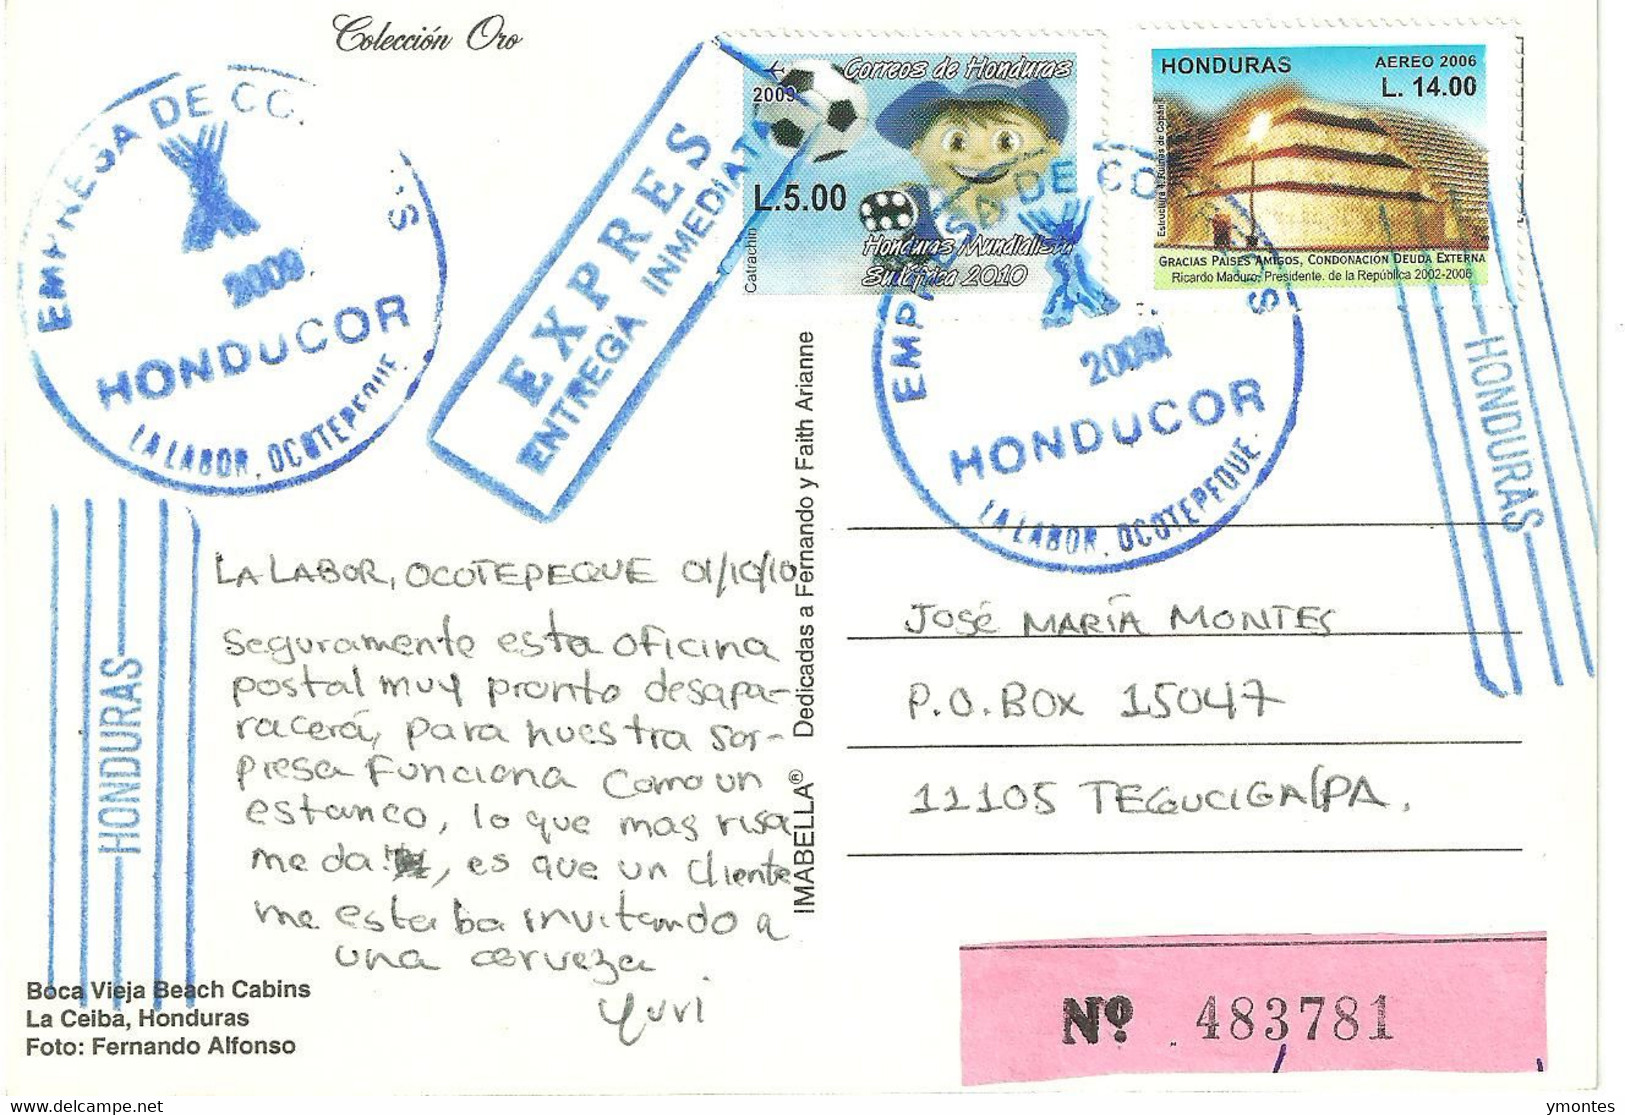 Colección Oro
EMPRESA DE CO
S
2009
HONDUCOR
LA LABOR, OCOTEPEQUE
EXPRES
ENTREGA INMEDIATA
Correos de Honduras
2009
L.5.00
Catrachin
Honduras Mundialista
Sudáfrica 2010
HONDURAS
AEREO 2006
L. 14.00
Estructura 4, Ruinas de Copán
GRACIAS PAISES AMIGOS, CONDONACION DEUDA EXTERNA
Ricardo Maduro, Presidente. de la República 2002-2006
EMPRESA DE CO
S
2009
HONDUCOR
LA LABOR, OCOTEPEQUE
HONDURAS
HONDURAS
LA LABOR, OCOTEPEQUE 01/10/10
Seguramente esta oficina
postal muy pronto desapa-
racerá, para nuestra sor-
presa funciona como un
estanco, lo que mas risa
me da, es que un cliente
me estaba invitando a
una cerveza
Yuri
IMABELLA® Dedicadas a Fernando y Faith Arianne
JOSÉ MARÍA MONTES
P.O. BOX 15047
11105 TEGUCIGALPA.
Boca Vieja Beach Cabins
La Ceiba, Honduras
Foto: Fernando Alfonso
Nº 483781
delcampe.net
ymontes